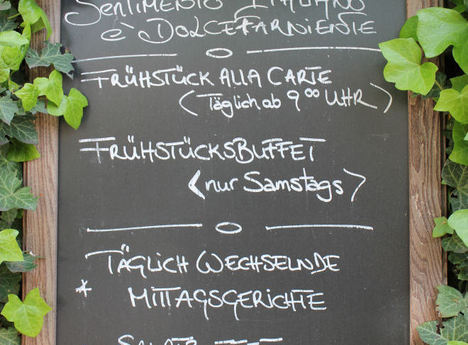 SENTIMENTO ITALIANO
e DOLCEFARNIENTE
FRÜHSTÜCK ALLA CARTE
<Täglich ab 9⁰⁰ UHR>
FRÜHSTÜCKSBUFFET
<nur Samstags>
TÄGLICH WECHSELNDE
* MITTAGSGERICHTE